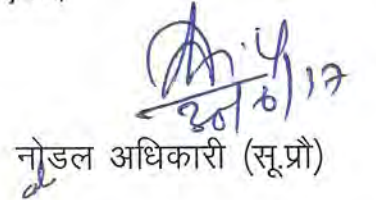 30/6/17
नोडल अधिकारी (सू.प्रौ)